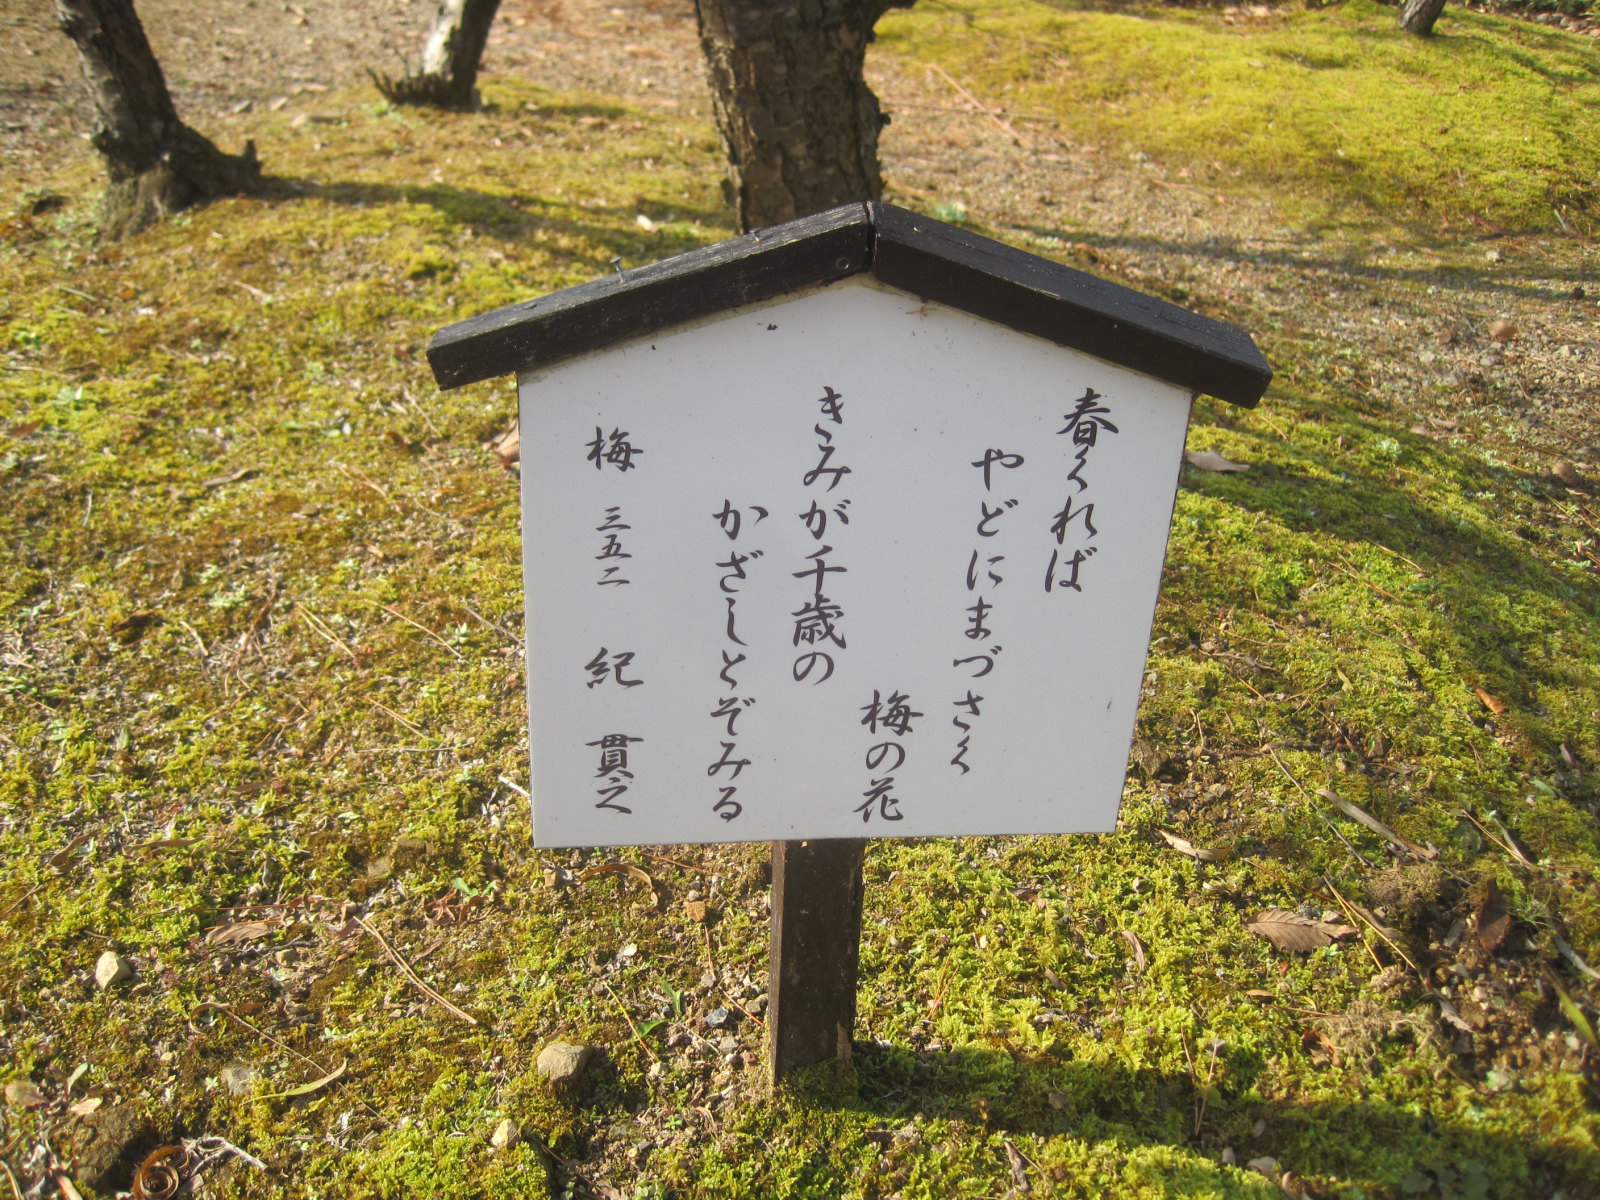 春くれば
やどにまづさく
梅の花
きみが千歳の
かざしとぞみる
梅 三五二 紀 貫之